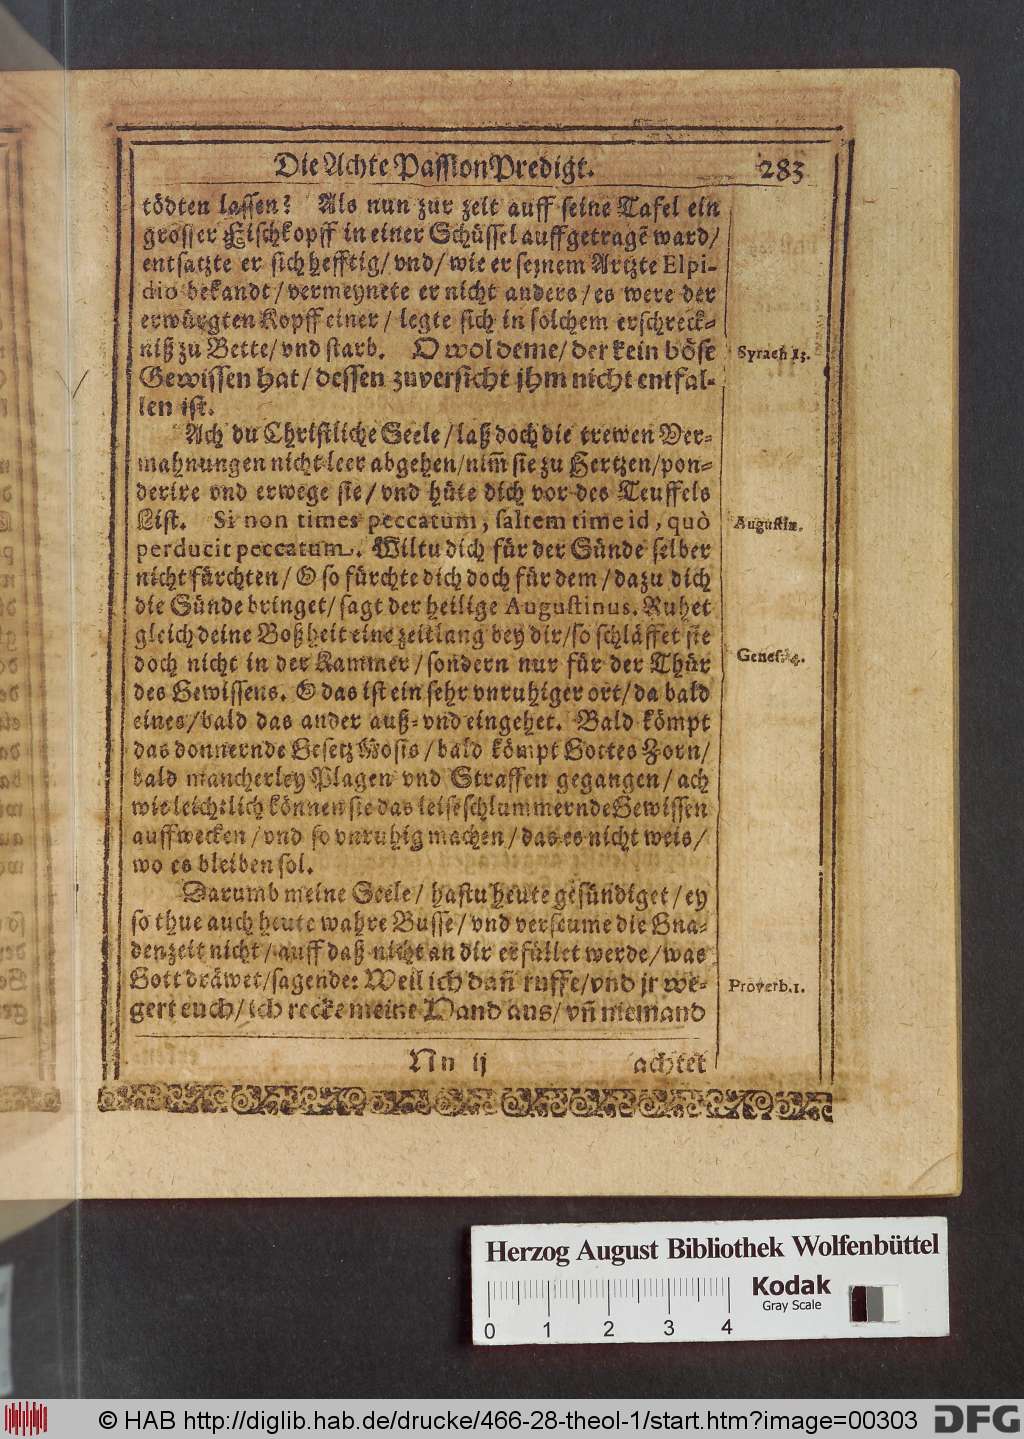 Die Achte PassionPredigt. 283
tödten lassen? Als nun zur zeit auff seine Tafel ein
grosser Fischkopff in einer Schüssel auffgetragẽ ward/
entsatzte er sich hefftig/ vnd/ wie er seinem Artzte Elpi-
dio bekandt/ vermeynete er nicht anders/ es were der
erwürgten Kopff einer/ legte sich in solchem erschreck-
niß zu Bette/ vnd starb. O wol deme/ der kein böse
Syrach 13.
Gewissen hat/ dessen zuversicht jhm nicht entfal-
len ist.
Ach du Christliche Seele/ laß doch die trewen Ver-
mahnungen nicht leer abgehen/ nim̃ sie zu Hertzen/ pon-
derire vnd erwege sie/ vnd hüte dich vor des Teuffels
List. Si non times peccatum, saltem time id, quò
Augustin.
perducit peccatum. Wiltu dich für der Sünde selber
nicht fürchten/ O so fürchte dich doch für dem/ dazu dich
die Sünde bringet/ sagt der heilige Augustinus. Ruhet
gleich deine Boßheit eine zeitlang bey dir/ so schläffet sie
doch nicht in der Kammer/ sondern nur für der Thür
Genes. 4.
des Gewissens. O das ist ein sehr vnruhiger ort/ da bald
eines/ bald das ander auß- vnd eingehet. Bald kömpt
das donnernde Gesetz Mosis/ bald kömpt Gottes Zorn/
bald mancherley Plagen vnd Straffen gegangen/ ach
wie leichtlich können sie das leise schlummernde Gewissen
auffwecken/ vnd so vnruhig machen/ das es nicht weis/
wo es bleiben sol.
Darumb meine Seele/ hastu heute gesündiget/ ey
so thue auch heute wahre Busse/ vnd verseume die Gna-
denzeit nicht/ auff daß nicht an dir erfüllet werde/ was
Gott dräwet/ sagende: Weil ich dañ ruffe/ vnd jr we-
Proverb. 1.
gert euch/ ich recke meine Hand aus/ vñ niemand
Nn ij achtet
Herzog August Bibliothek Wolfenbüttel
Kodak
Gray Scale
0 1 2 3 4
© HAB http://diglib.hab.de/drucke/466-28-theol-1/start.htm?image=00303
DFG